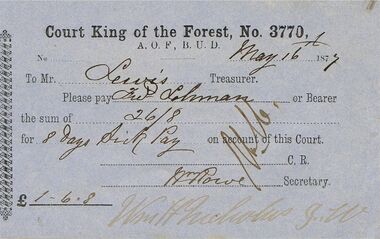 Court King of the Forest, No. 3770,
A. O. F., B. U. D.
No May 16th 1877
To Mr. Lewis Treasurer.
Please pay Fred Lohman or Bearer
the sum of 26/8
for 8 Days Sick Pay on account of this Court.
C. R.
Wm Rowe Secretary.
£ 1-6-8
Wm H Nicholas